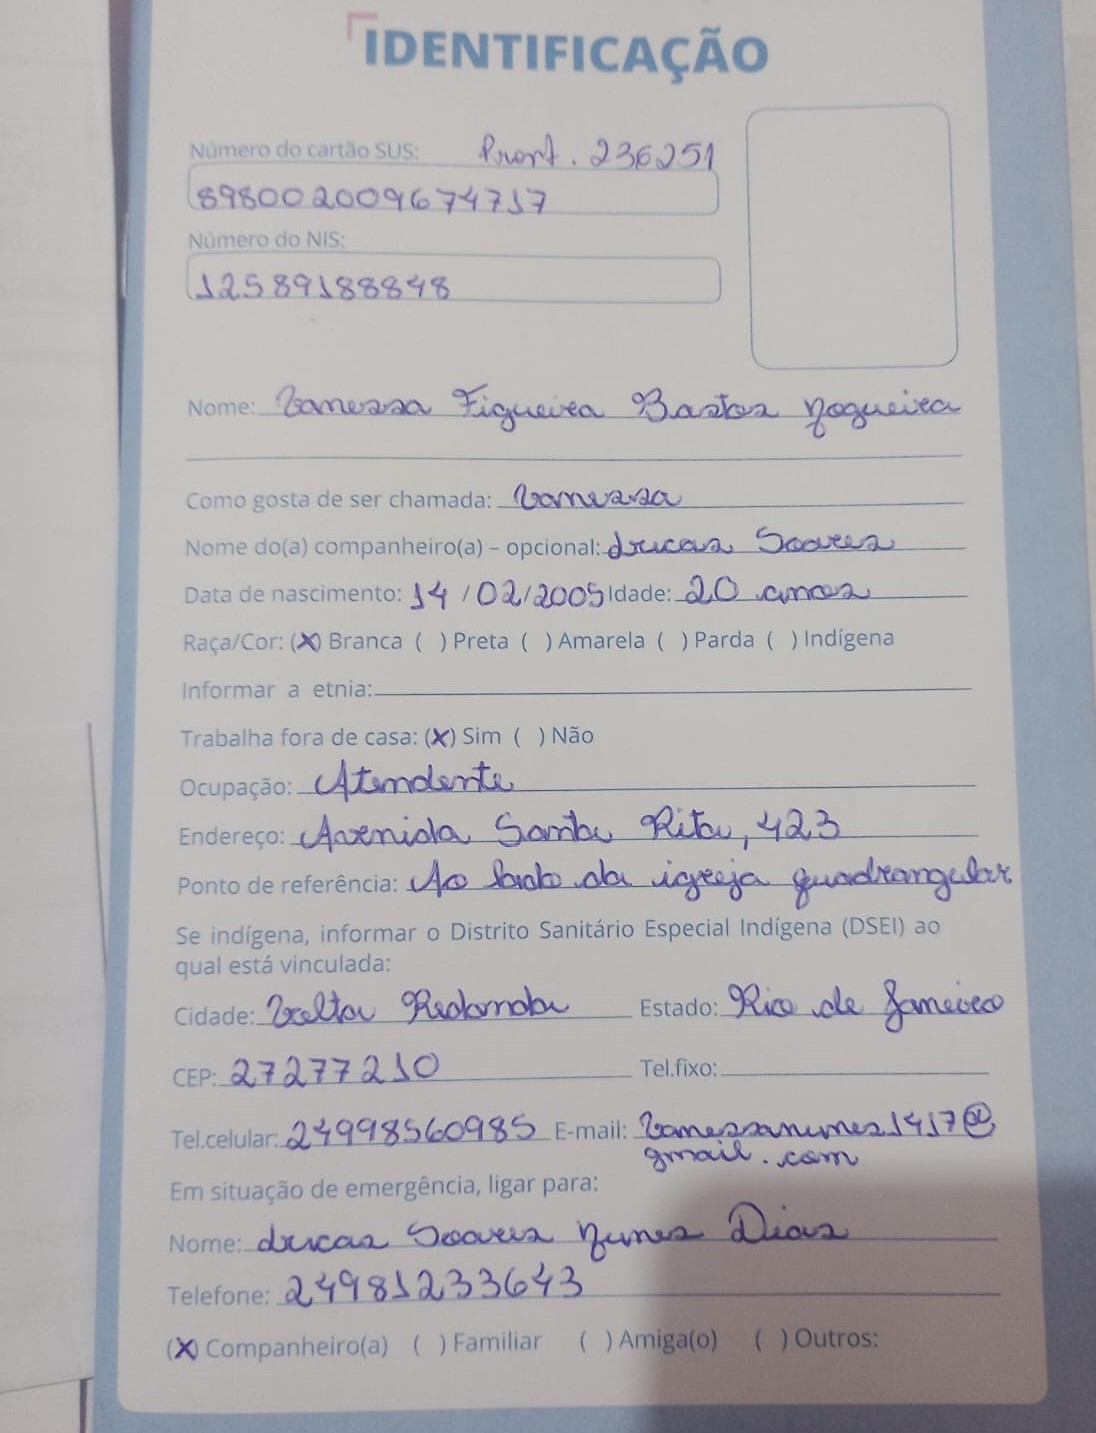 IDENTIFICAÇÃO
Número do cartão SUS: Pront. 236251
898002009674717
Número do NIS:
12589188848
Nome: Vanessa Figueira Bastos Nogueira
Como gosta de ser chamada: Vanessa
Nome do(a) companheiro(a) – opcional: Lucas Soares
Data de nascimento: 14/02/2005 Idade: 20 anos
Raça/Cor: (X) Branca ( ) Preta ( ) Amarela ( ) Parda ( ) Indígena
Informar a etnia:
Trabalha fora de casa: (X) Sim ( ) Não
Ocupação: Atendente
Endereço: Avenida Santa Rita, 423
Ponto de referência: Ao lado da igreja quadrangular
Se indígena, informar o Distrito Sanitário Especial Indígena (DSEI) ao
qual está vinculada:
Cidade: Volta Redonda Estado: Rio de Janeiro
CEP: 27277210 Tel.fixo:
Tel.celular: 24998560985 E-mail: Vanessanunes1417@
gmail.com
Em situação de emergência, ligar para:
Nome: Lucas Soares Nunes Dias
Telefone: 24981233643
(X) Companheiro(a) ( ) Familiar ( ) Amiga(o) ( ) Outros: